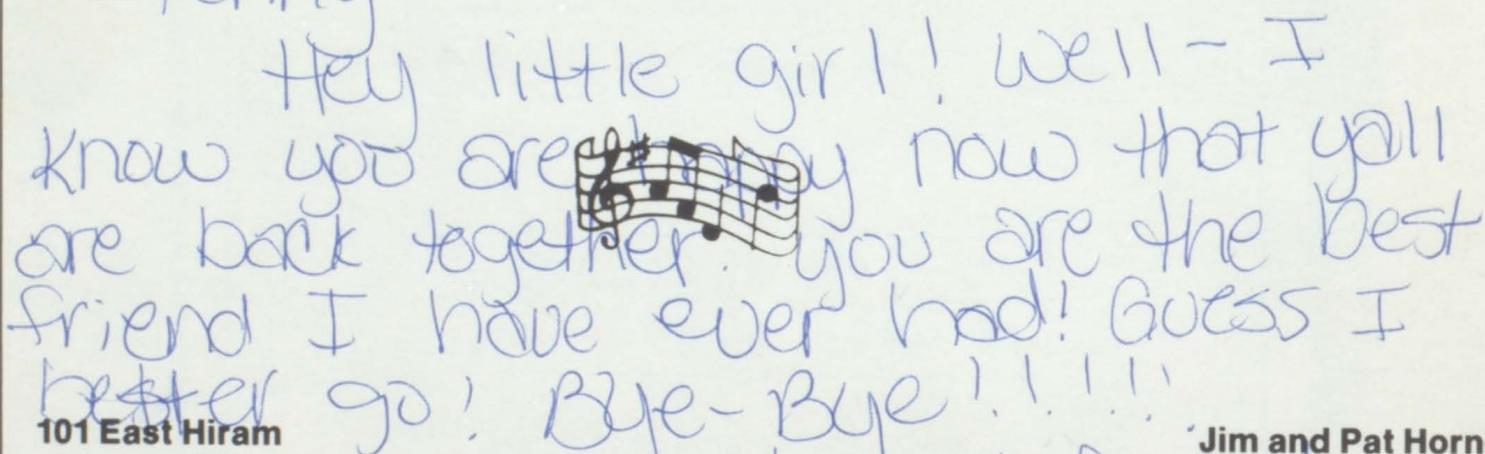 Hey little girl! Well - I
know you are happy now that yall
are back together. you are the best
friend I have ever had! Guess I
better go! Bye-Bye!!!!!
101 East Hiram
Jim and Pat Horn